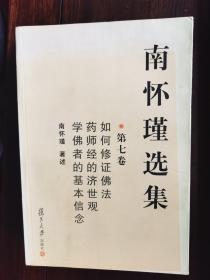 南怀瑾选集
第七卷
如何修证佛法
药师经的济世观
学佛者的基本信念
南怀瑾 著述
復旦大學出版社